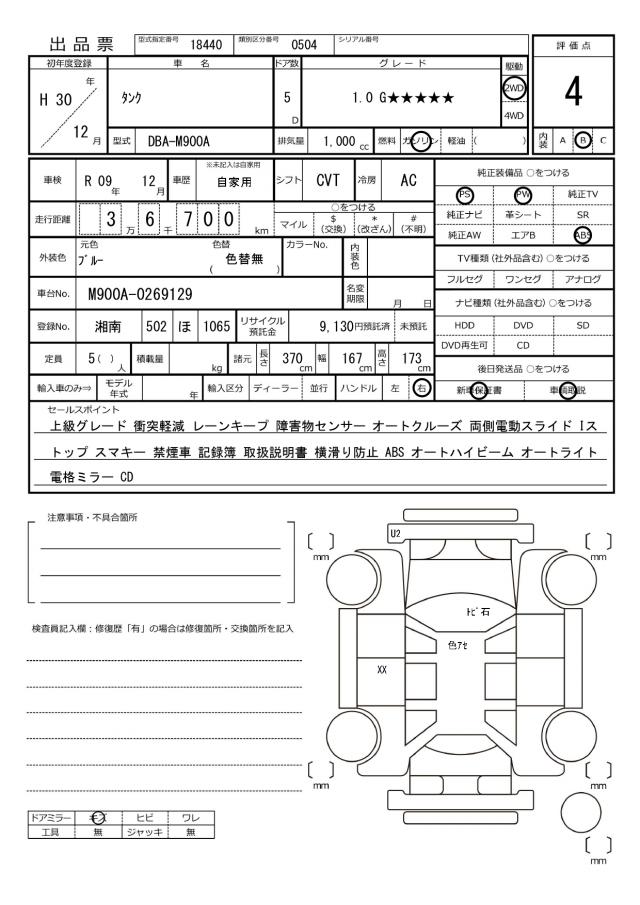 出品票 型式指定番号 18440 類別区分番号 0504 シリアル番号
評価点
4
内装 A B C
初年度登録 車名 ドア数 グレード 駆動
H 30 年 12 月 タンク 5 D 1.0 G★★★★★ 2WD 4WD
型式 DBA-M900A 排気量 1,000 cc 燃料 ガソリン 軽油 ( )
車検 R 09 年 12 月 車歴 ※未記入は自家用 自家用 シフト CVT 冷房 AC
走行距離 3 6 万 7 千 0 0 km ○をつける マイル $ (交換) * (改ざん) # (不明)
外装色 元色 ブルー 色替 ( 色替無 ) カラーNo. 内装色
車台No. M900A-0269129 名変期限 月 日
登録No. 湘南 502 ほ 1065 リサイクル預託金 9,130円預託済 未預託
定員 5 ( ) 人 積載量 kg 諸元 長さ 370 cm 幅 167 cm 高さ 173 cm
輸入車のみ⇒ モデル年式 年 輸入区分 ディーラー 並行 ハンドル 左 右
純正装備品 ○をつける
PS PW 純正TV
純正ナビ 革シート SR
純正AW エアB ABS
TV種類 (社外品含む) ○をつける
フルセグ ワンセグ アナログ
ナビ種類 (社外品含む) ○をつける
HDD DVD SD
DVD再生可 CD
後日発送品 ○をつける
新車保証書 車輌取説
セールスポイント
上級グレード 衝突軽減 レーンキープ 障害物センサー オートクルーズ 両側電動スライド Iス
トップ スマキー 禁煙車 記録簿 取扱説明書 横滑り防止 ABS オートハイビーム オートライト
電格ミラー CD
注意事項・不具合箇所
検査員記入欄：修復歴「有」の場合は修復箇所・交換箇所を記入
U2
[ ] mm
[ ] mm
トビ石
色アセ
XX
[ ] mm
[ ] mm
[ ] mm
ドアミラー キズ ヒビ ワレ
工具 無 ジャッキ 無